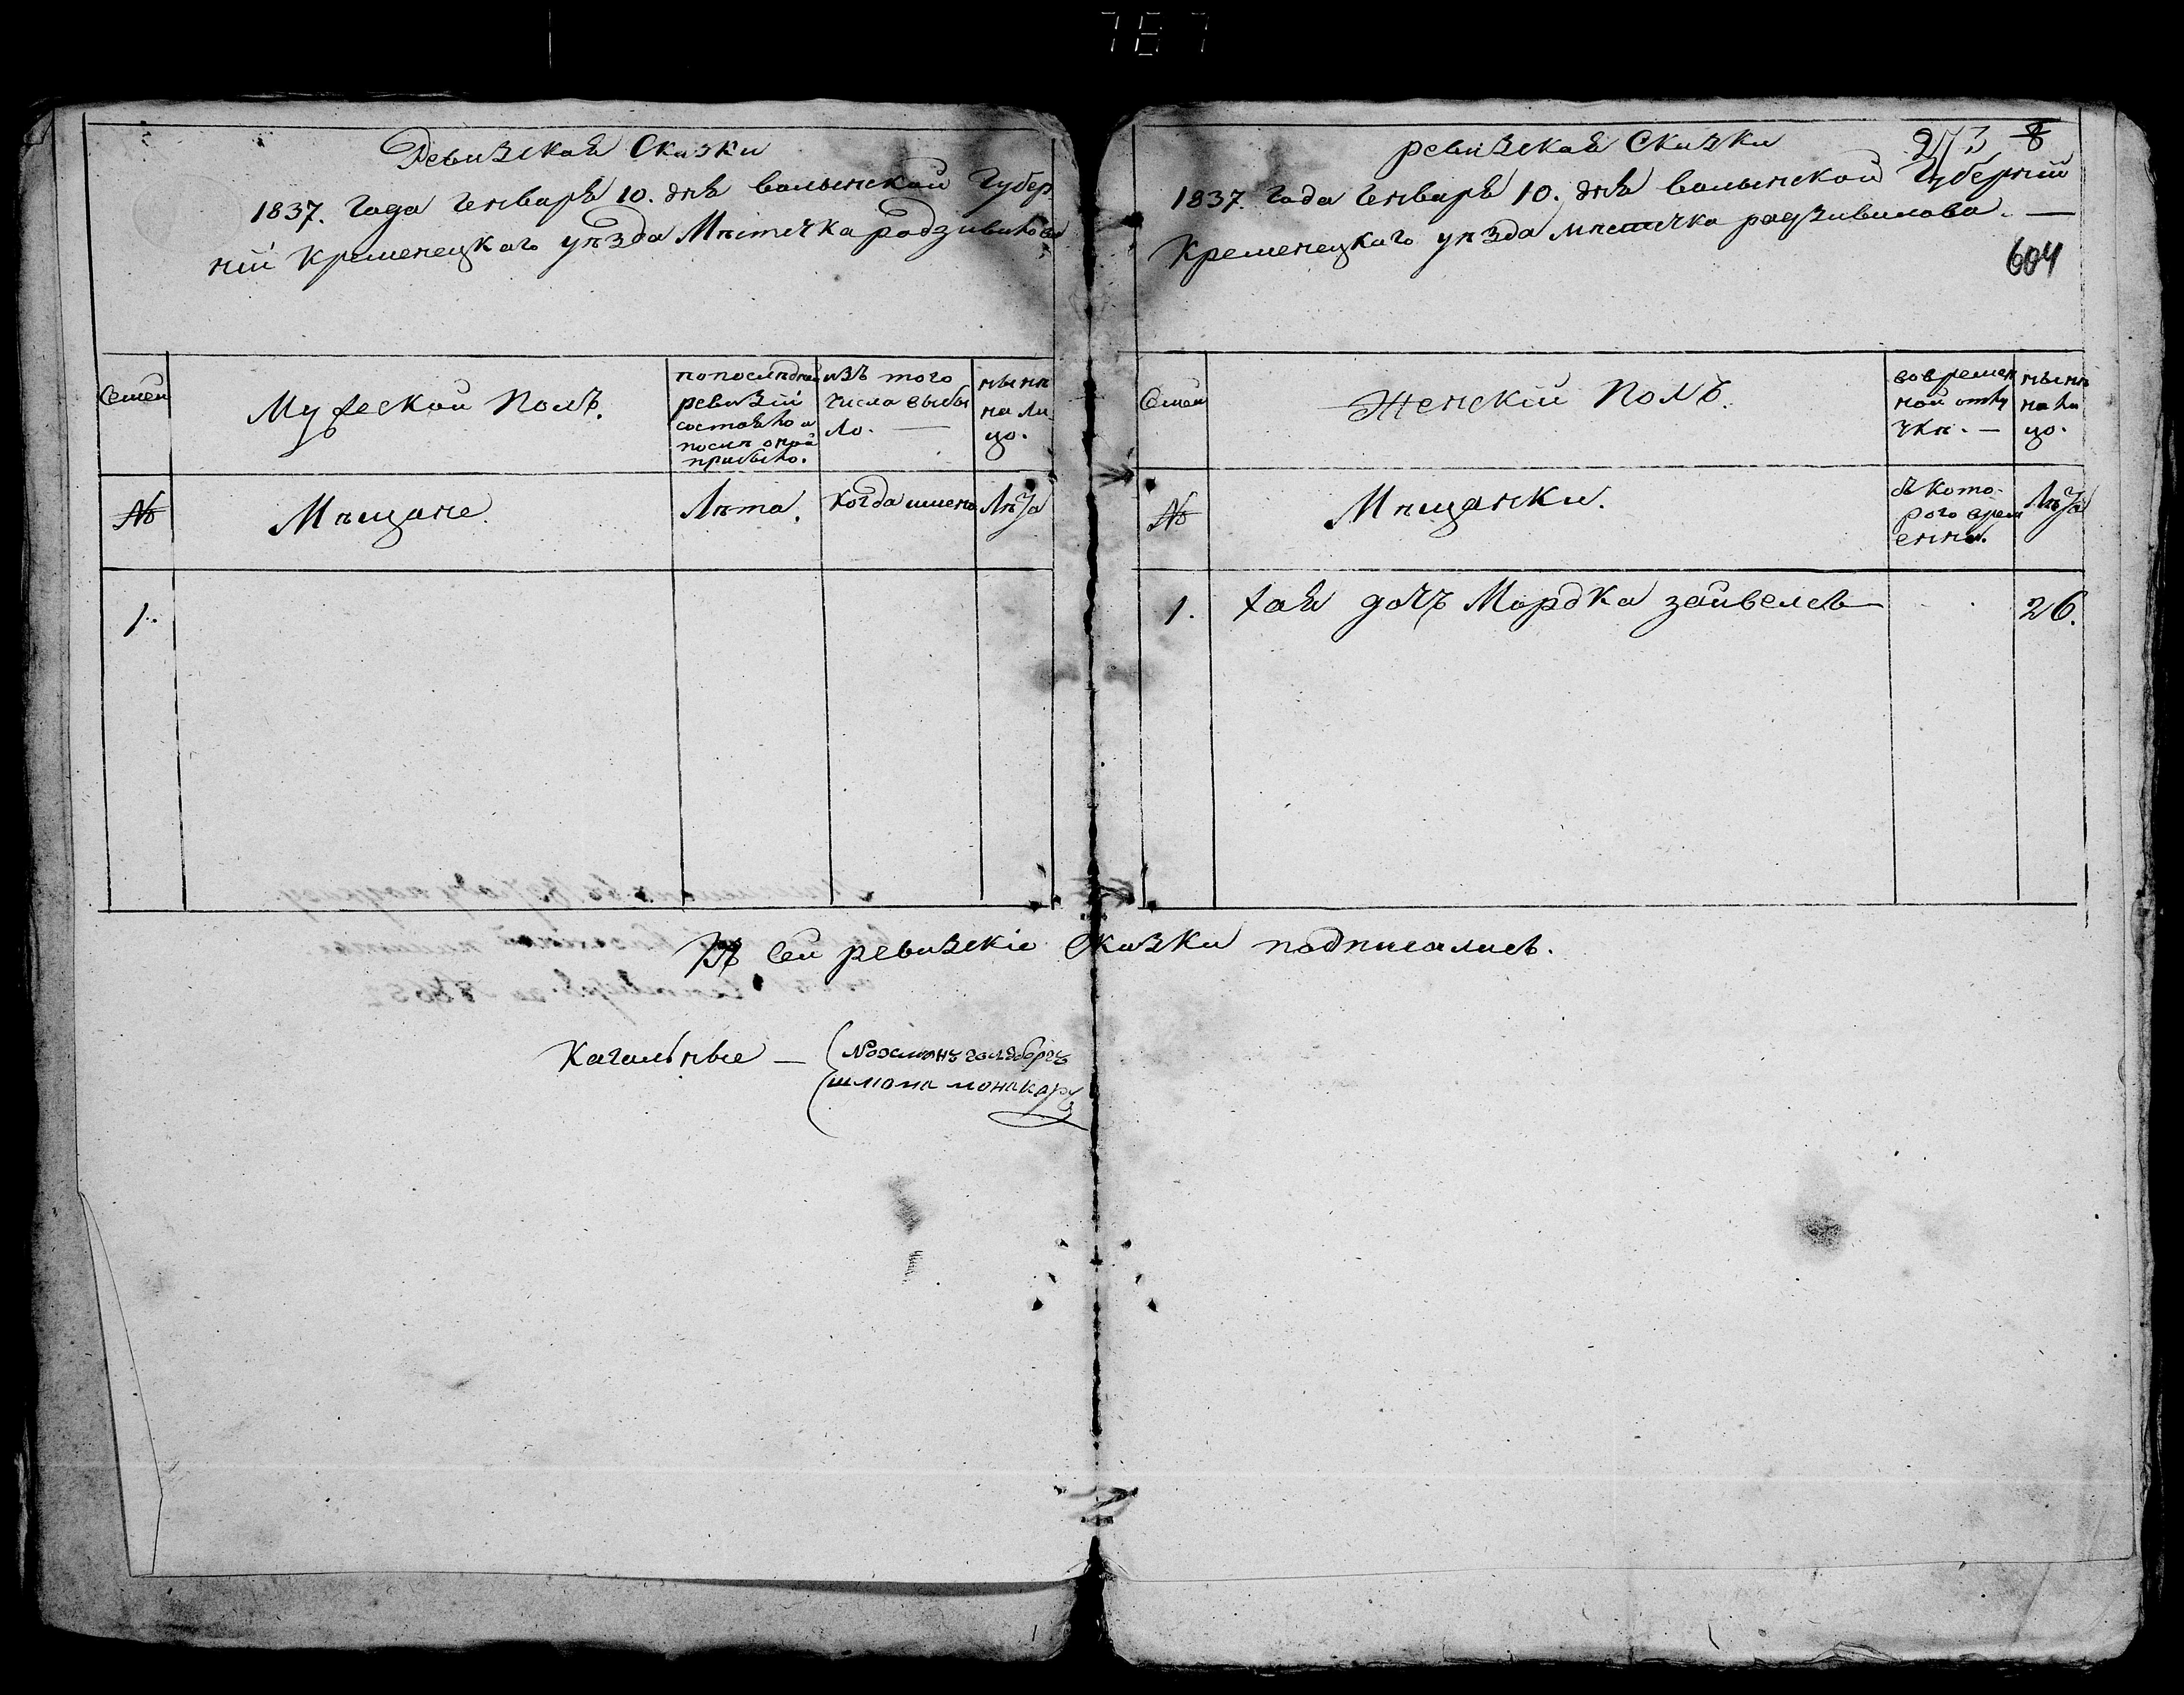 787
Ревизская Сказки
1837. Года Генваря 10. дня волынской Губер
ній Кременецкаго уѣзда Мѣстечка Родзивилова
Семей
Мужеской Полъ.
по послѣдней
ревизіи
состояло и
послѣ оной
прибыло.
изъ того
числа выбы
ло. —
нынѣ
на ли
цо.
№
Мѣщане.
Лѣта.
когда имено
Лѣта
1.
ревизская Сказки
273 8
1837. Года Генваря 10. дня волынской Губерній
Кременецкаго уѣзда мѣстечка радзивилова. —
604
Семей
Женскій Полъ.
во времен
ной отлу
чкѣ. —
нынѣ
на ли
цо.
№
Мѣщанки.
съ кото
рого врем
енни.
Лѣта
1. хая дочъ Мордка зейвелев 26.
Къ сей ревизскіе Сказки подписались.
Кагальные — Нохманъ голдбергъ
шмата